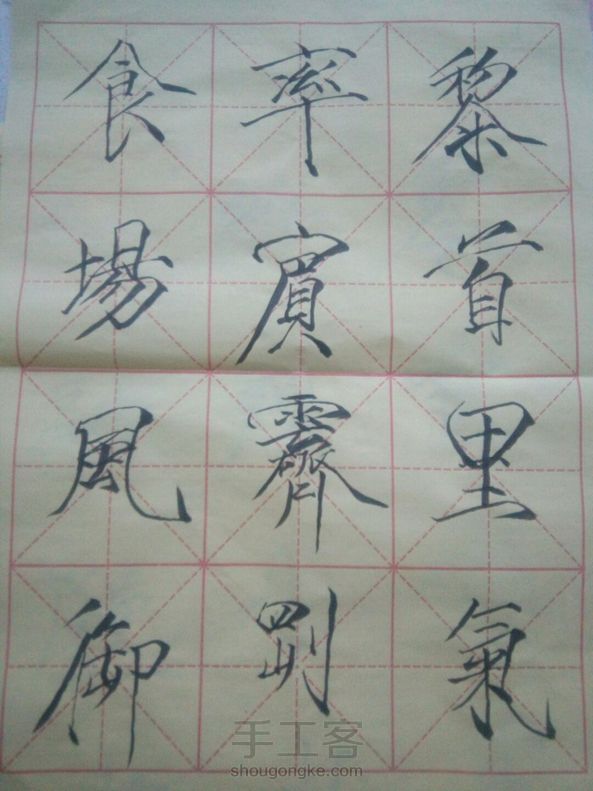 黎首里氣
率賓霽
食場風御
手工客
shougongke.com